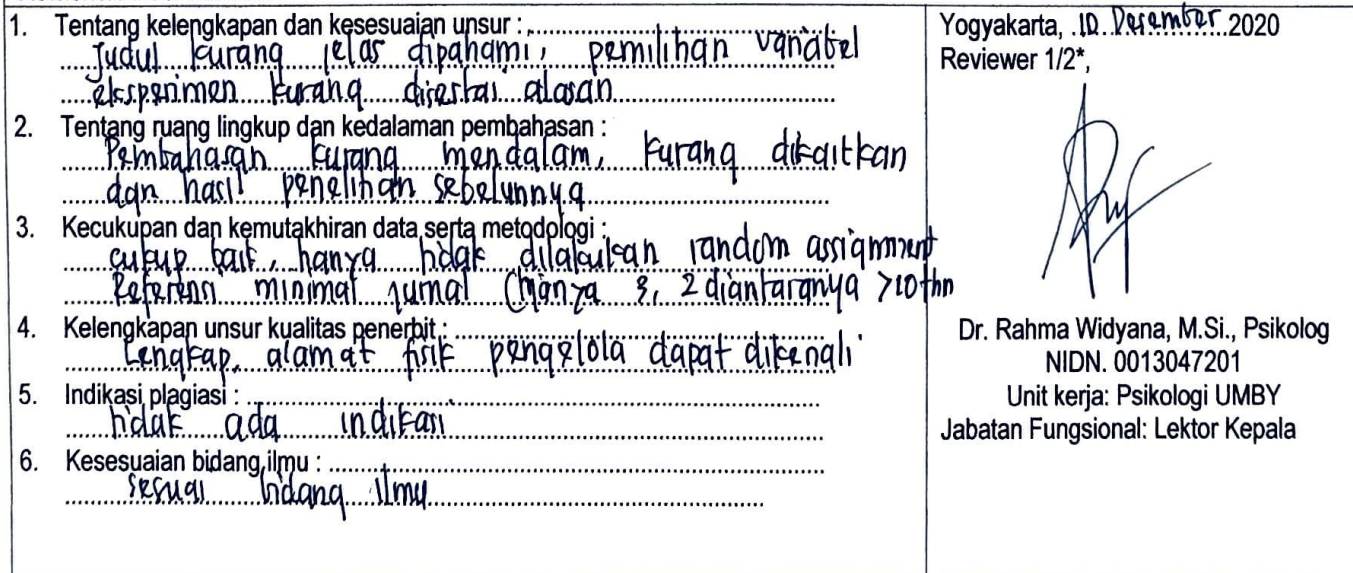 1. Tentang kelengkapan dan kesesuaian unsur :
Judul kurang jelas dipahami, pemilihan variabel
eksperimen kurang disertai alasan
2. Tentang ruang lingkup dan kedalaman pembahasan :
Pembahasan kurang mendalam, kurang dikaitkan
dgn hasil penelitian sebelumnya
3. Kecukupan dan kemutakhiran data serta metodologi :
cukup baik, hanya tidak dilakukan random assignment
Referensi minimal jurnal (hanya 3, 2 diantaranya >10 thn
4. Kelengkapan unsur kualitas penerbit :
Lengkap, alamat fisik pengelola dapat dikenali
5. Indikasi plagiasi :
tidak ada indikasi
6. Kesesuaian bidang ilmu :
sesuai bidang ilmu
Yogyakarta, 10 Desember 2020
Reviewer 1/2*,
Dr. Rahma Widyana, M.Si., Psikolog
NIDN. 0013047201
Unit kerja: Psikologi UMBY
Jabatan Fungsional: Lektor Kepala